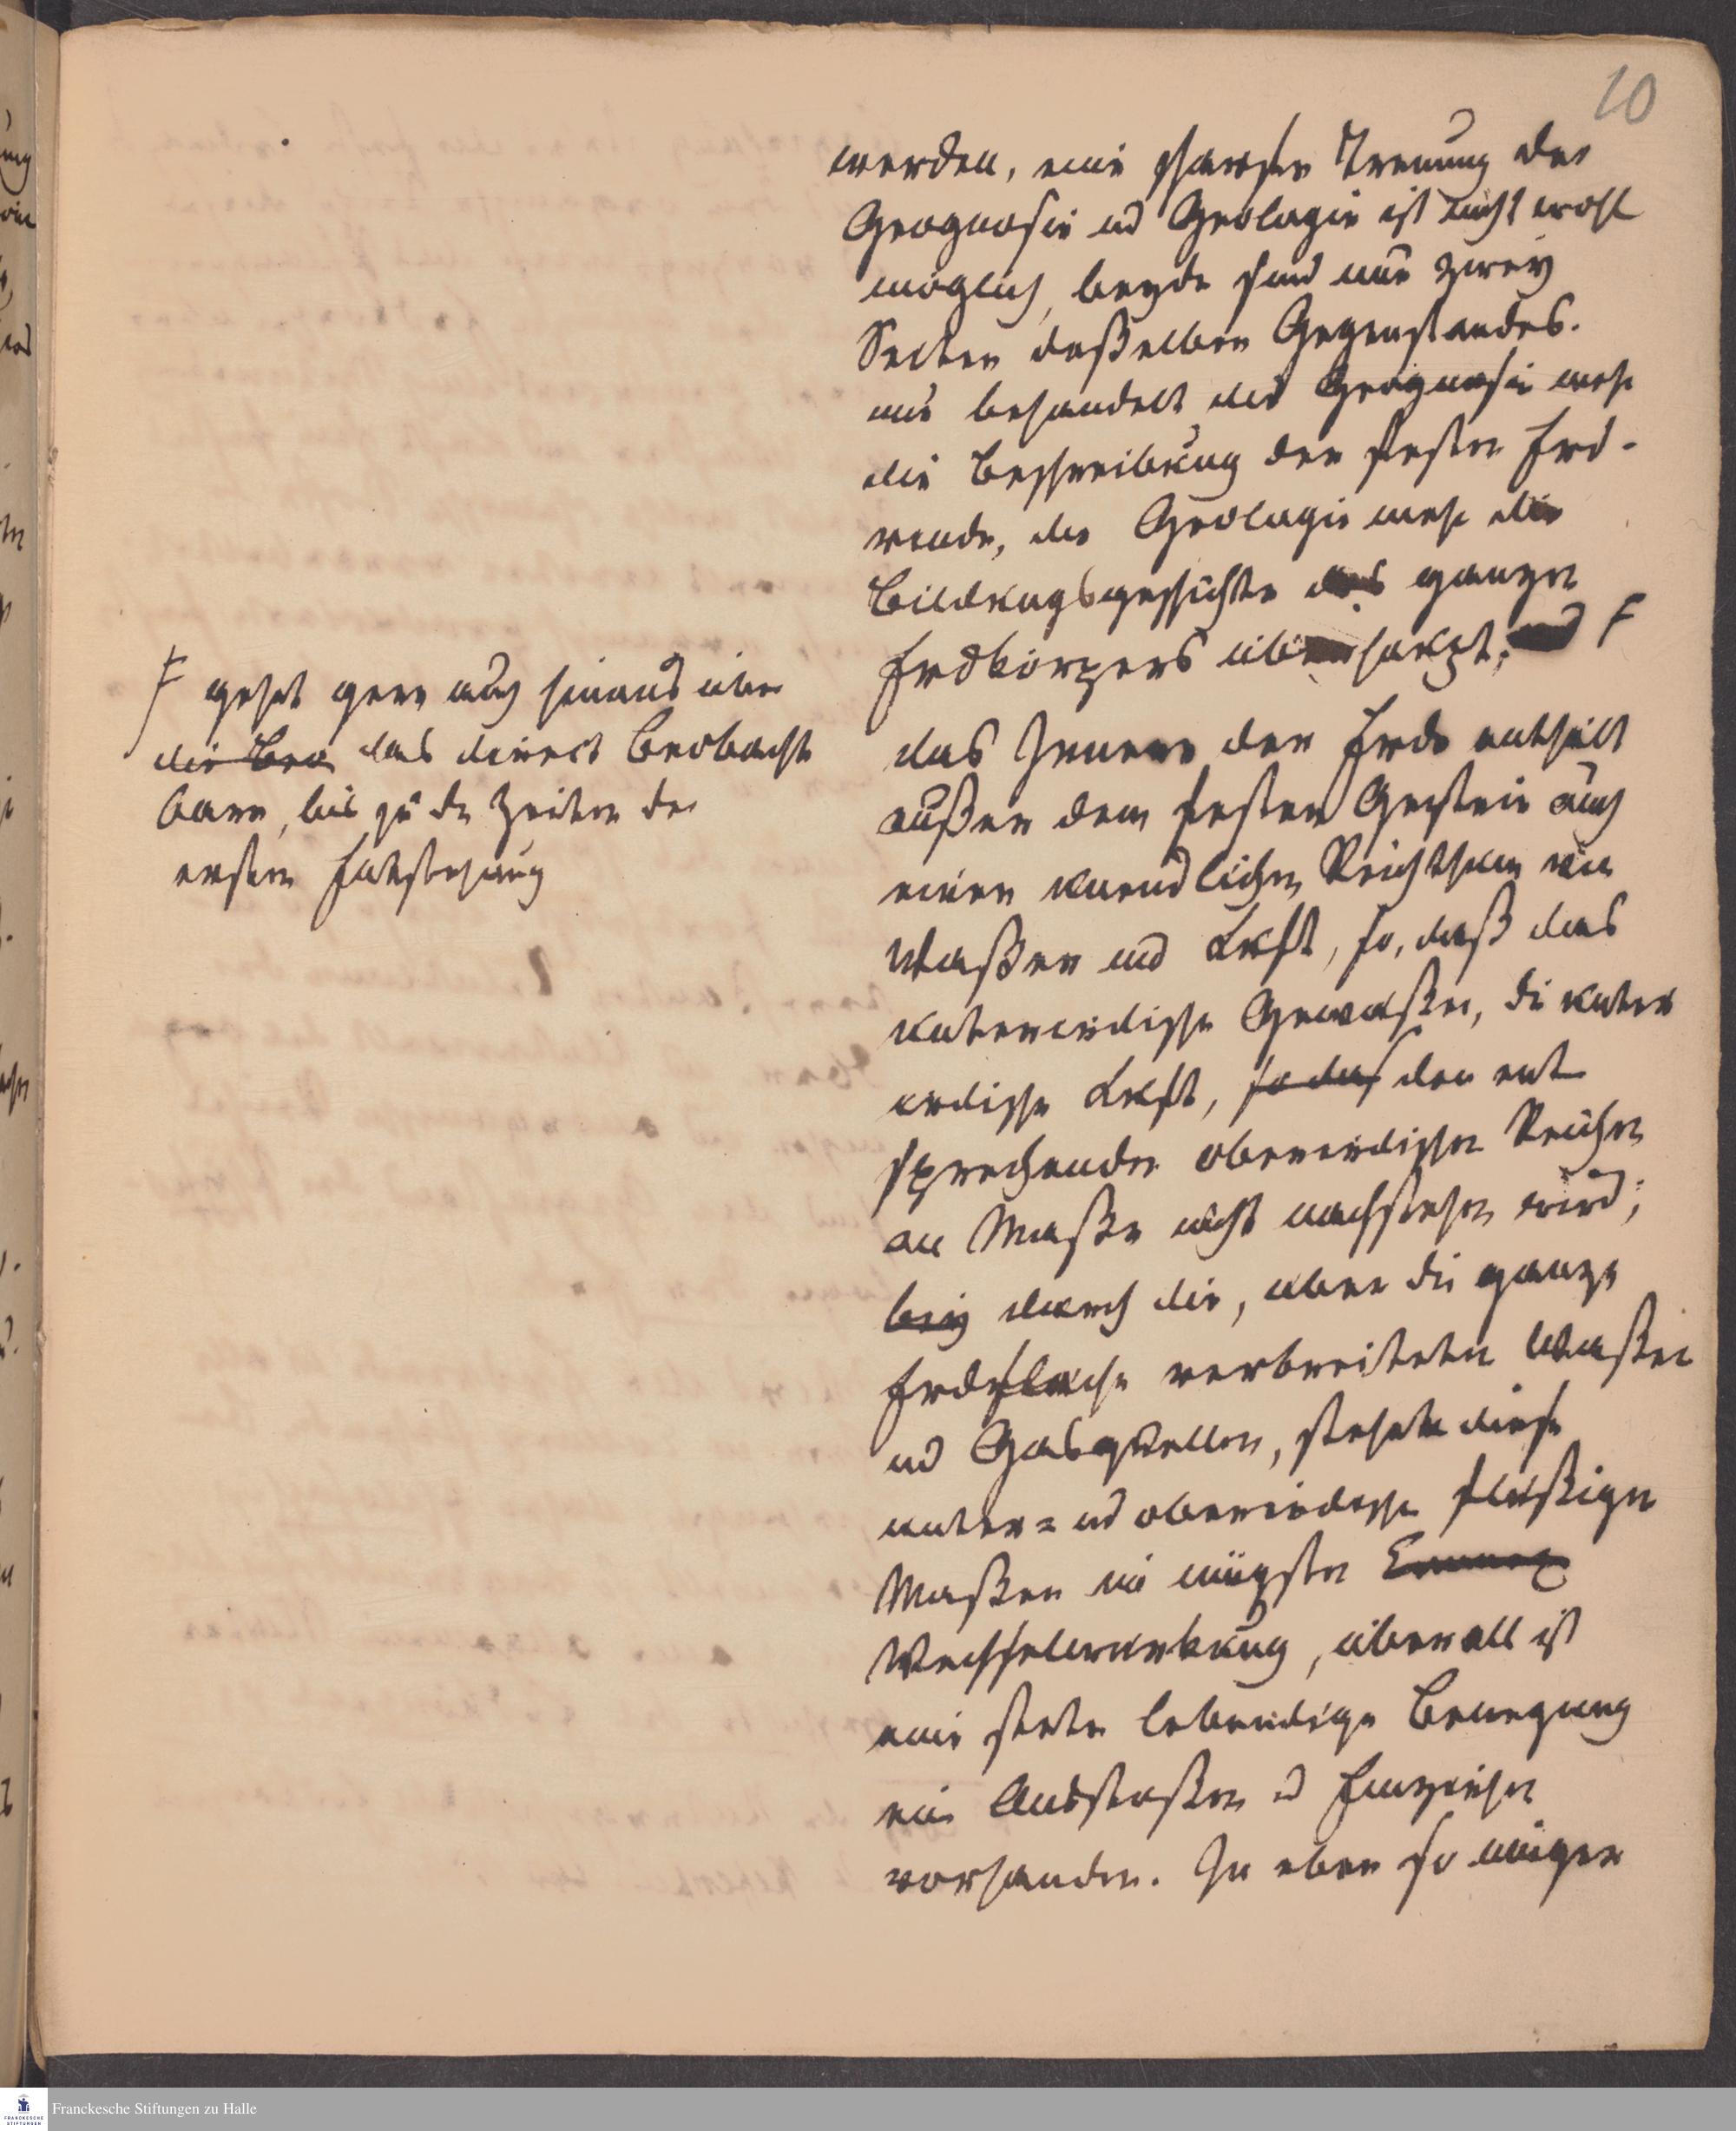 10
werden, eine scharfe Trennung der
Geognosie und Geologie ist nicht wohl
möglich, beyde sind nur zwey
Seiten deßelben Gegenstandes.
nur behandelt die Geognosie mehr
die Beschreibung der festen Erd-
rinde, die Geologie mehr die
Bildungsgeschichte des ganzen
Erdkörpers überhaupt; und F
das Innere der Erde enthält
außer dem festen Gestein auch
einen unendlichen Reichthum von
Waßer und Luft, so, daß das
unterirdische Gewäßer, die unter
irdische Luft, so daß den ent
sprechenden oberirdischen Reichen
an Maße nicht nachstehen wird;
bey durch die, über die ganze
Erdfläche verbreiteten Waßer
und Gasquellen, stehen diese
unter= und oberirdische flüßigen
Maßen in innigster
Wechselwirkung, überall ist
eine stete lebendige Bewegung
ein Ausstoßen und Einziehen
vorhanden. In eben so inniger
F geht gern auch hinaus über
die Beo das direct Beobacht
bare, bis zu den Zeiten der
ersten Entstehung
Franckesche Stiftungen zu Halle